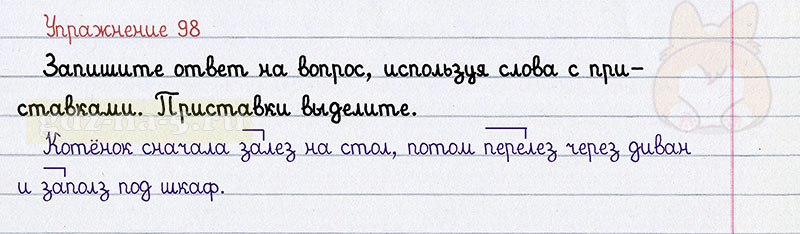 Упражнение 98
Запишите ответ на вопрос, используя слова с при-
ставками. Приставки выделите.
Котёнок сначала залез на стол, потом перелез через диван
и заполз под шкаф.